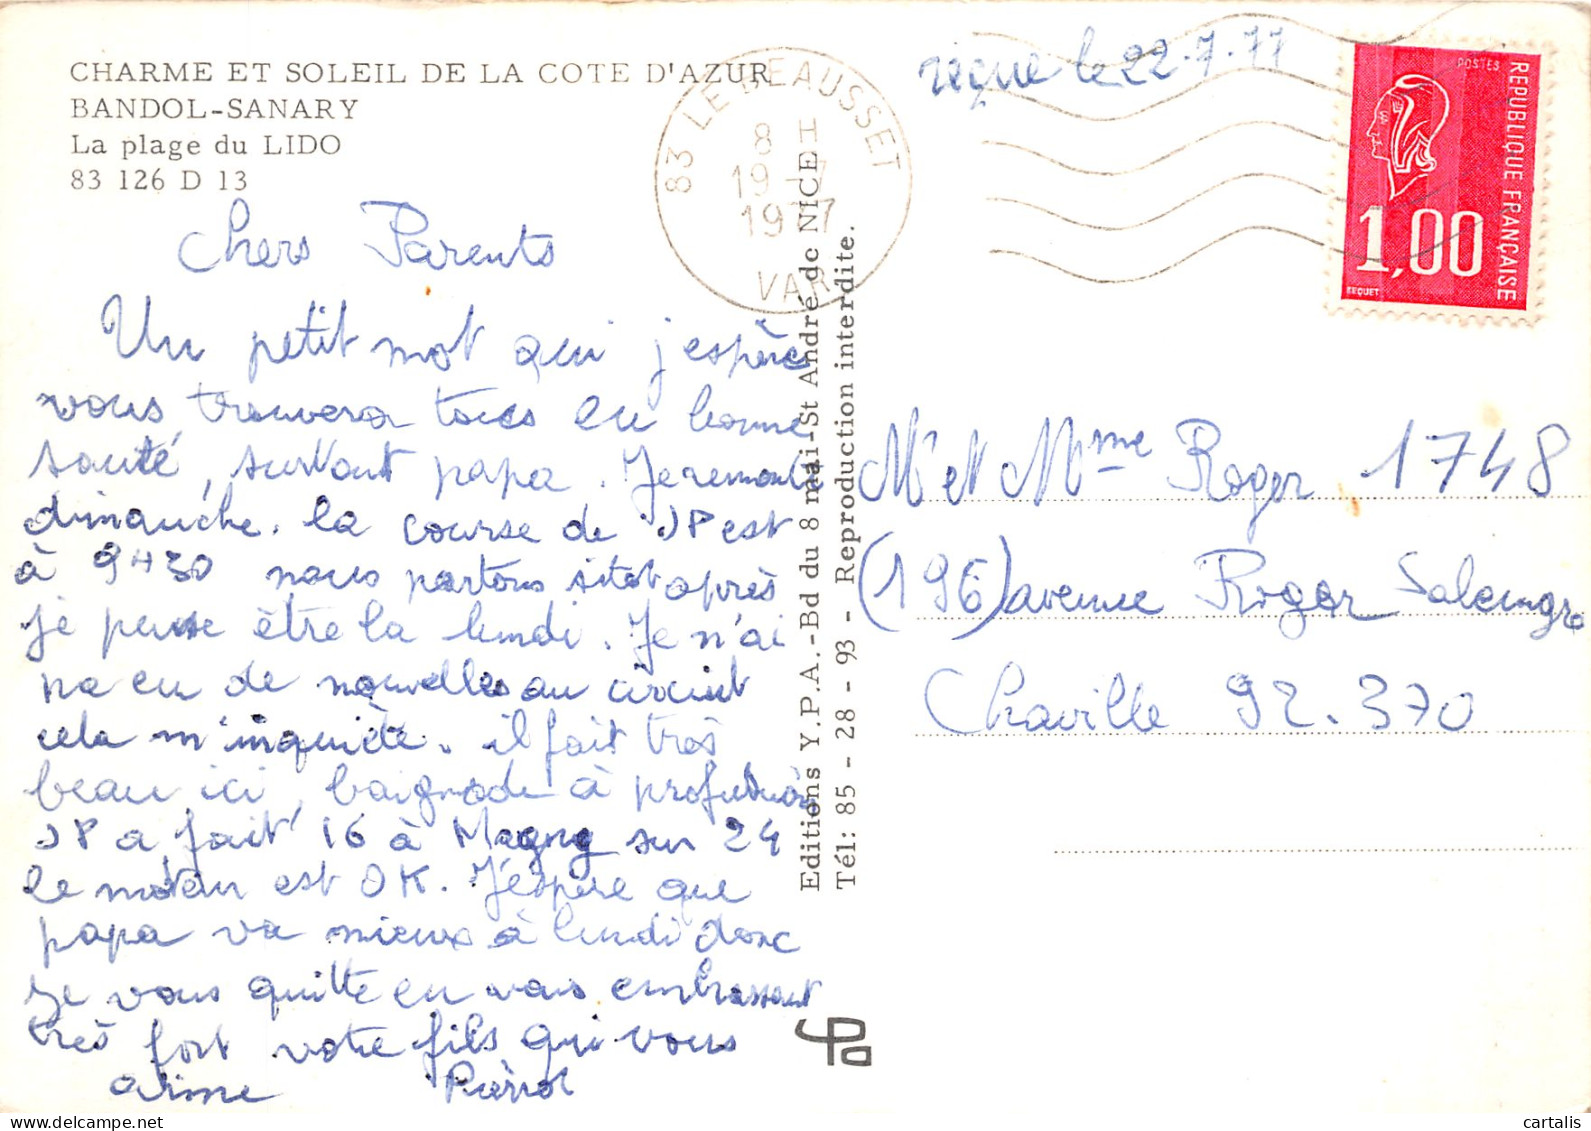 CHARME ET SOLEIL DE LA COTE D'AZUR
BANDOL-SANARY
La plage du LIDO
83 126 D 13
83 LE BEAUSSET
8 H
19 -7
1977
VAR
reçue le 22.7.77
POSTES
REPUBLIQUE FRANÇAISE
1,00
BEQUET
Chers Parents
Un petit mot qui j'espère
vous trouvera tous en bonne
santé, surtout papa. Je remonte
dimanche. la course de JP est
à 9H30 nous partons sitot après
je pense être la lundi. Je n'ai
pa eu de nouvelles au circuit
cela m'inquiète. il fait très
beau ici, baignade à profusion
JP a fait 16 à Magny sur 24
le moteur est OK. J'éspère que
papa va mieux à lundi donc
je vous quitte en vous embrassant
très fort votre fils qui vous
aime Pierrot
Editions Y.P.A.-Bd du 8 mai-St André de NICE
Tél: 85 - 28 - 93 - Reproduction interdite.
M et Mme Roger 1748
(196) avenue Roger Salengro
Chaville 92.370
YPA
cartalis
www.delcampe.net